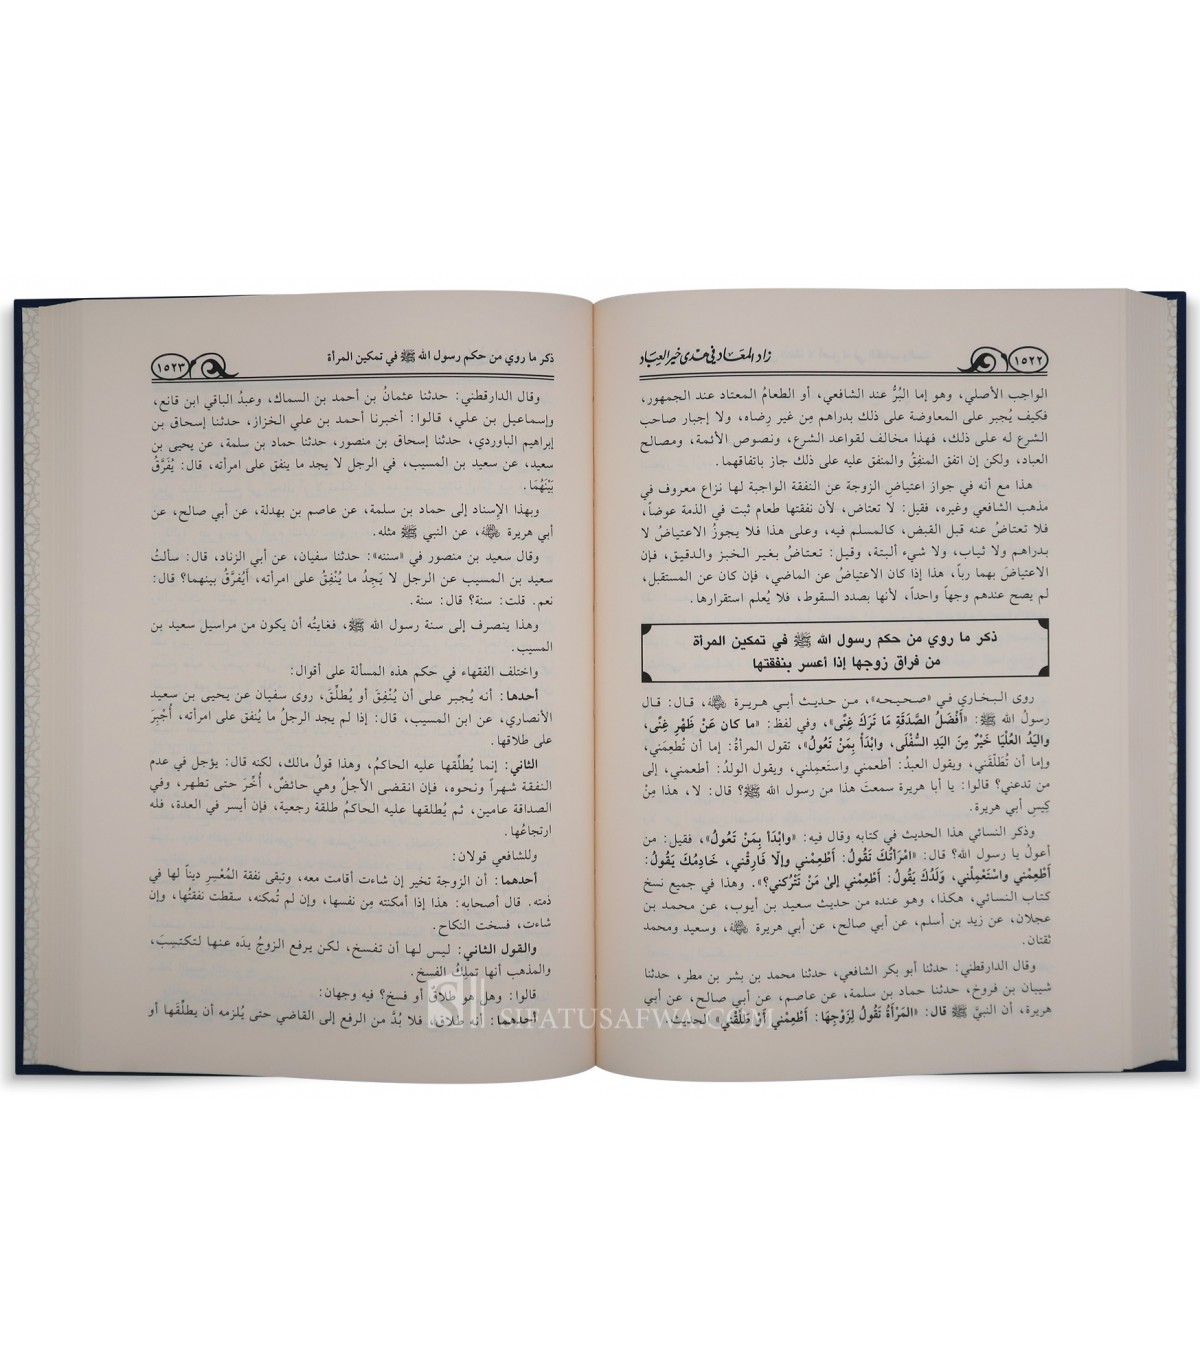 ١٥٢٢
زاد المعاد في هدي خير العباد
الواجب الأصلي، وهو إما البُرُّ عند الشافعي، أو الطعامُ المعتاد عند الجمهور،
فكيف يُجبر على المعاوضة على ذلك بدراهم مِن غير رِضاه، ولا إجبار صاحب
الشرع له على ذلك، فهذا مخالف لقواعد الشرع، ونصوص الأئمة، ومصالح
العباد، ولكن إن اتفق المنفِقُ والمنفق عليه على ذلك جاز باتفاقهما.
هذا مع أنه في جواز اعتياضِ الزوجة عن النفقة الواجبة لها نزاع معروف في
مذهب الشافعي وغيره، فقيل: لا تعتاض، لأن نفقتها طعام ثبت في الذمة عوضاً،
فلا تعتاضُ عنه قبل القبض، كالمسلم فيه، وعلى هذا فلا يجوزُ الاعتياضُ لا
بدراهم ولا ثياب، ولا شيء ألبتة، وقيل: تعتاضُ بغير الخبز والدقيق، فإن
الاعتياضَ بهما رباً، هذا إذا كان الاعتياضُ عن الماضي، فإن كان عن المستقبل،
لم يصح عندهم وجهاً واحداً، لأنها بصدد السقوط، فلا يُعلم استقرارها.
ذكر ما روي من حكم رسول الله ﷺ في تمكين المرأة
من فراق زوجها إذا أعسر بنفقتها
روى البخاري في «صحيحه»، من حديث أبي هريرة رضي الله عنه، قال: قال
رسولُ الله ﷺ: «أَفْضَلُ الصَّدَقَةِ مَا تَرَكَ غِنًى»، وفي لفظ: «ما كان عَنْ ظَهْرِ غِنًى،
واليَدُ العُلْيَا خَيْرٌ مِنَ اليَدِ السُّفْلَى، وابْدَأْ بِمَنْ تَعُولُ»، تقول المرأةُ: إما أن تُطعِمَني،
وإما أن تُطلِّقَني، ويقول العبدُ: أطعمني واستَعمِلني، ويقول الولدُ: أطعمني، إلى
من تدعني؟ قالوا: يا أبا هريرة سمعتَ هذا من رسول الله ﷺ؟ قال: لا، هذا مِنْ
كِيسِ أبي هريرة.
وذكر النسائي هذا الحديث في كتابه وقال فيه: «وابْدَأْ بِمَنْ تَعُولُ»، فقيل: من
أعولُ يا رسول الله؟ قال: «امْرَأَتُكَ تَقُولُ: أَطْعِمْني وإلّا فَارِقْني، خَادِمُكَ يَقُولُ:
أَطْعِمْني واسْتَعْمِلْني، وَلَدُكَ يَقُولُ: أَطْعِمْني إلىٰ مَنْ تَتْرُكني؟». وهذا في جميع نسخ
كتاب النسائي، هكذا، وهو عنده من حديث سعيد بن أيوب، عن محمد بن
عجلان، عن زيد بن أسلم، عن أبي صالح، عن أبي هريرة رضي الله عنه، وسعيد ومحمد
ثقتان.
وقال الدارقطني: حدثنا أبو بكر الشافعي، حدثنا محمد بن بشر بن مطر، حدثنا
شيبان بن فروخ، حدثنا حماد بن سلمة، عن عاصم، عن أبي صالح، عن أبي
هريرة، أن النبيَّ ﷺ قال: «المَرْأَةُ تَقُولُ لِزَوْجِهَا: أَطْعِمْني أَوْ طَلِّقْني» الحديث.
ذكر ما روي من حكم رسول الله ﷺ في تمكين المرأة
١٥٢٣
وقال الدارقطني: حدثنا عثمانُ بن أحمد بن السماك، وعبدُ الباقي ابن قانع،
وإسماعيل بن علي، قالوا: أخبرنا أحمد بن علي الخزاز، حدثنا إسحاق بن
إبراهيم الباوردي، حدثنا إسحاق بن منصور، حدثنا حماد بن سلمة، عن يحيى بن
سعيد، عن سعيد بن المسيب، في الرجل لا يجد ما ينفق على امرأته، قال: يُفَرَّقُ
بَيْنَهُمَا.
وبهذا الإسناد إلى حماد بن سلمة، عن عاصم بن بهدلة، عن أبي صالح، عن
أبي هريرة رضي الله عنه، عن النبي ﷺ مثله.
وقال سعيد بن منصور في «سننه»: حدثنا سفيان، عن أبي الزناد، قال: سألتُ
سعيد بن المسيب عن الرجل لا يَجِدُ ما يُنْفِقُ على امرأته، أيُفرَّقُ بينهما؟ قال:
نعم. قلت: سنة؟ قال: سنة.
وهذا ينصرف إلى سنة رسول الله ﷺ، فغايتُه أن يكون من مراسيل سعيد بن
المسيب.
واختلف الفقهاء في حكم هذه المسألة على أقوال:
أحدها: أنه يُجبر على أن يُنْفِقَ أو يُطلِّقَ، روى سفيان عن يحيى بن سعيد
الأنصاري، عن ابن المسيب، قال: إذا لم يجد الرجلُ ما يُنفق على امرأته، أُجْبِرَ
على طلاقها.
الثاني: إنما يُطلِّقها عليه الحاكمُ، وهذا قولُ مالك، لكنه قال: يؤجل في عدم
النفقة شهراً ونحوه، فإن انقضى الأجلُ وهي حائضٌ، أُخِّرَ حتى تطهر، وفي
الصداقة عامين، ثم يُطلقها عليه الحاكمُ طلقة رجعية، فإن أيسر في العدة، فله
ارتجاعُها.
وللشافعي قولان:
أحدهما: أن الزوجة تخير إن شاءت أقامت معه، وتبقى نفقة المُعْسِرِ ديناً لها في
ذمته. قال أصحابه: هذا إذا أمكنته مِن نفسها، وإن لم تُمكنه، سقطت نفقتُها، وإن
شاءت، فسخت النكاح.
والقول الثاني: ليس لها أن تفسخ، لكن يرفع الزوجُ يدَه عنها لتكتسِبَ،
والمذهب أنها تملِكُ الفسخ.
قالوا: وهل هو طلاقٌ أو فسخ؟ فيه وجهان:
أحدهما: أنه طلاق، فلا بُدَّ من الرفع إلى القاضي حتى يُلزمه أن يطلِّقَها أو
SIFATUSAFWA.COM